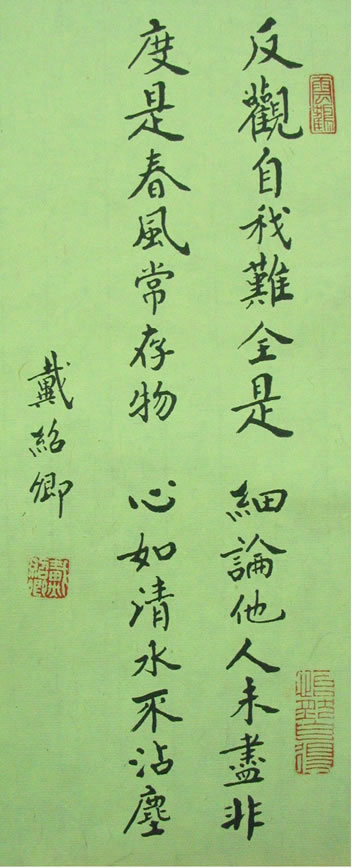 反觀自我難全是 細論他人未盡非
度是春風常存物 心如清水不沾塵
戴紹卿